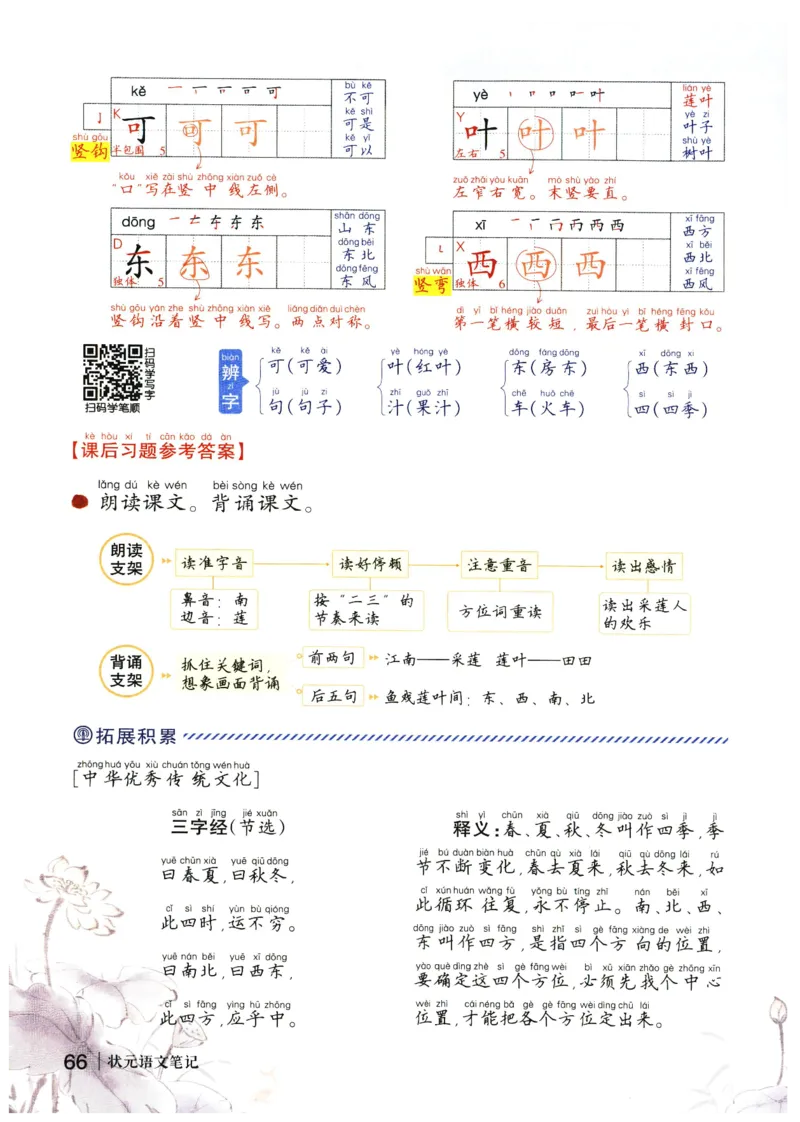 kě 一 丁 丆 可 可
亅 K 可 可 可
shù gōu
竖钩 半包围 5
bù kě
不可
kě shì
可是
kě yǐ
可以
kǒu xiě zài shù zhōng xiàn zuǒ cè
“口”写在竖中线左侧。
yè
Y 叶 叶 叶
左右 5
lián yè
莲叶
yè zi
叶子
shù yè
树叶
zuǒ zhǎi yòu kuān mò shù yào zhí
左窄右宽。末竖要直。
dōng
D 东 东 东
独体 5
shān dōng
山东
dōng běi
东北
dōng fēng
东风
shù gōu yán zhe shù zhōng xiàn xiě liǎng diǎn duì chèn
竖钩沿着竖中线写。两点对称。
xī
X 西 西 西
shù wān
竖弯 独体 6
xī fāng
西方
xī běi
西北
xī fēng
西风
dì yī bǐ héng jiào duǎn zuì hòu yì bǐ héng fēng kǒu
第一笔横较短，最后一笔横封口。
扫码学写字
扫码学笔顺
biàn zì
辨字
kě kě ài
可(可爱)
jù jù zi
句(句子)
yè hóng yè
叶(红叶)
zhī guǒ zhī
汁(果汁)
dōng fáng dōng
东(房东)
chē huǒ chē
车(火车)
xī dōng xi
西(东西)
sì sì jì
四(四季)
kè hòu xí tí cān kǎo dá àn
【课后习题参考答案】
lǎng dú kè wén bèi sòng kè wén
朗读课文。背诵课文。
朗读支架
读准字音 读好停顿 注意重音 读出感情
鼻音：南
边音：莲
按“二三”的
节奏来读
方位词重读
读出采莲人
的欢乐
背诵支架
抓住关键词，
想象画面背诵
前两句 江南——采莲 莲叶——田田
后五句 鱼戏莲叶间：东、西、南、北
拓展积累
zhōng huá yōu xiù chuán tǒng wén huà
[中华优秀传统文化]
sān zì jīng jié xuǎn
三字经(节选)
yuē chūn xià yuē qiū dōng
曰春夏，曰秋冬，
cǐ sì shí yùn bù qióng
此四时，运不穷。
yuē nán běi yuē xī dōng
曰南北，曰西东，
cǐ sì fāng yìng hū zhōng
此四方，应乎中。
shì yì chūn xià qiū dōng jiào zuò sì jì jì
释义：春、夏、秋、冬叫作四季，季
jié bú duàn biàn huà chūn qù xià lái qiū qù dōng lái rú
节不断变化，春去夏来，秋去冬来，如
cǐ xún huán wǎng fù yǒng bù tíng zhǐ nán běi xī
此循环往复，永不停止。南、北、西、
dōng jiào zuò sì fāng shì zhǐ sì gè fāng xiàng de wèi zhi
东叫作四方，是指四个方向的位置，
yào què dìng zhè sì gè fāng wèi bì xū xiān zhǎo gè zhōng xīn
要确定这四个方位，必须先找个中心
wèi zhi cái néng bǎ gè gè fāng wèi dìng chū lái
位置，才能把各个方位定出来。
66 状元语文笔记